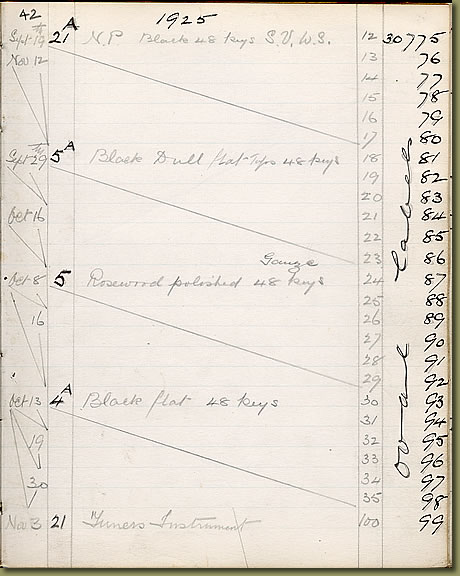 42 1925
Sept 19 21 A N.P Black 48 keys S.V.W.S. 12 30775
Nov 12 13 76
14 77
15 78
16 79
17 80
Sept 29 5 A Black Dull flat Tops 48 keys 18 81
19 82
20 83
Oct 16 21 84
22 85
Gauze 23 86
Oct 8 5 Rosewood polished 48 keys 24 87
25 88
16 26 89
27 90
28 91
29 92
Oct 13 4 A Black flat 48 keys 30 93
31 94
19 32 95
33 96
30 34 97
35 98
Nov 3 21 Tuners Instrument 100 99
Oval Labels